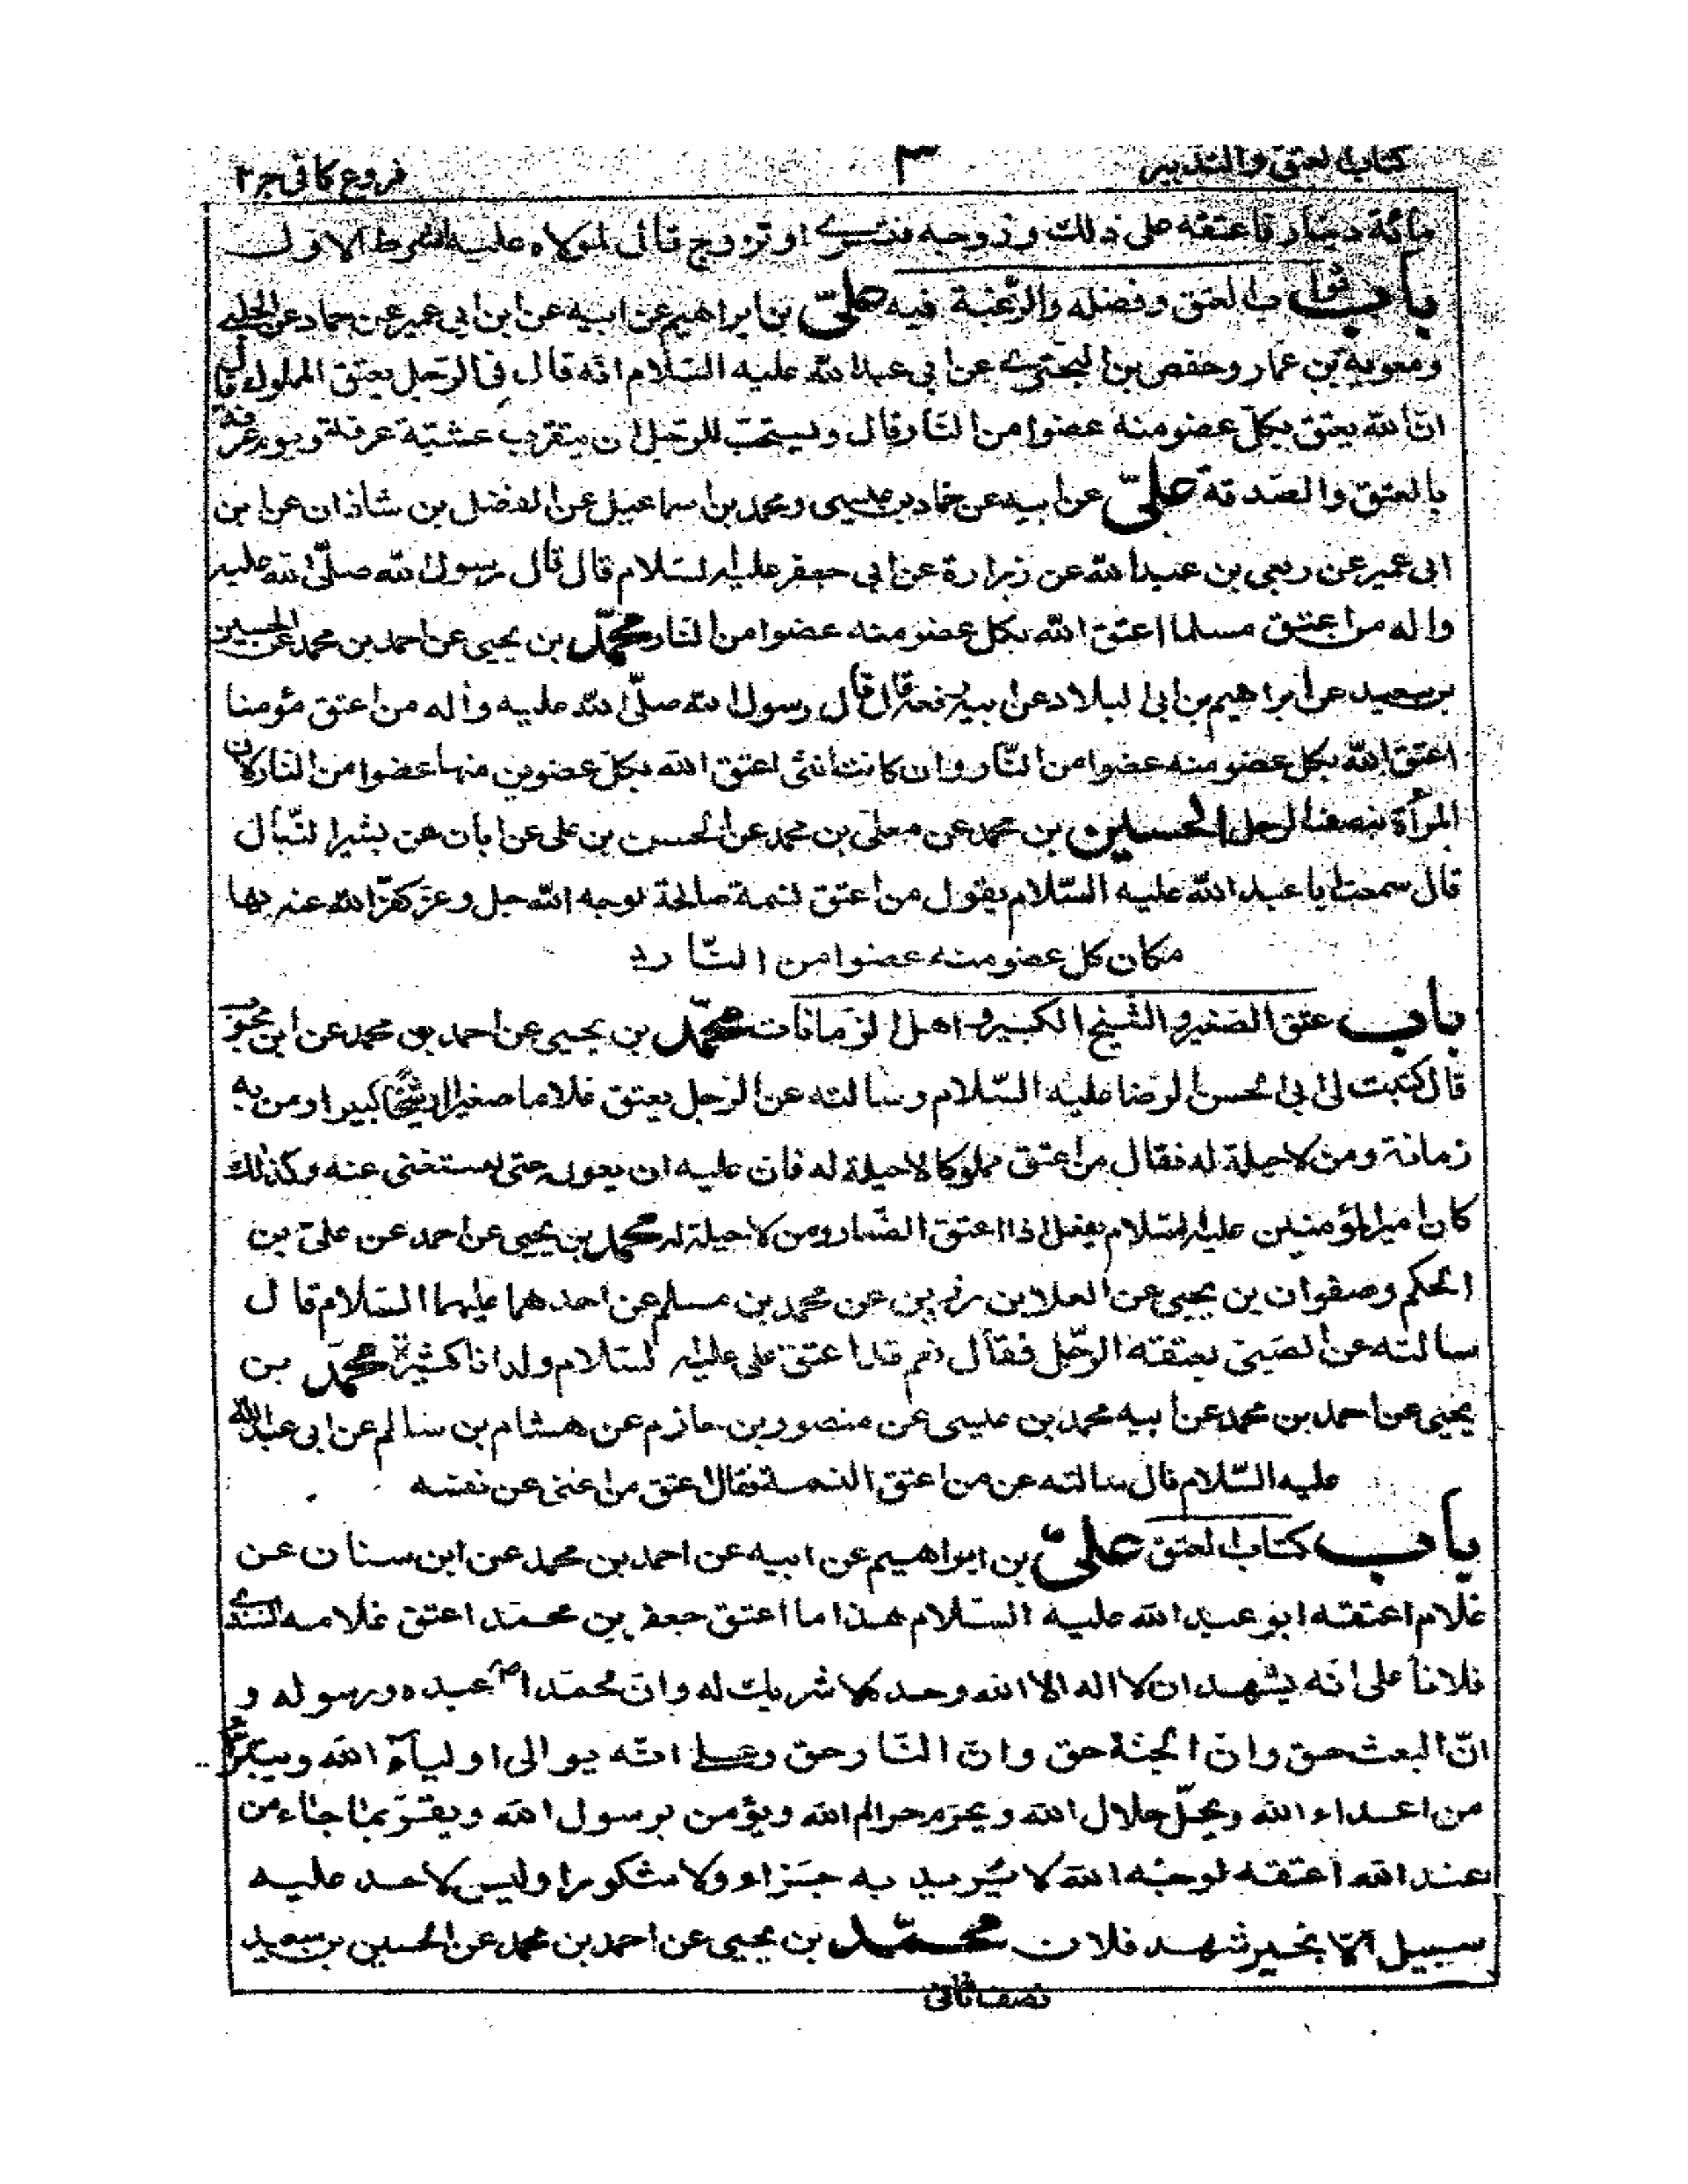 كتاب العتق والتدبير ٣ فروع كافى ج٢
مائة دينار فاعتقه على ذلك وزوجه فتسرى او تزوج قال لمولاه عليه الشرط الاول
باب ثواب العتق وفضله والرغبة فيه على بن ابراهيم عن ابيه عن ابن ابى عمير عن حماد عن الحلبى
ومعوية بن عمار وحفص بن البخترى عن ابى عبد الله عليه السلام انه قال فى الرجل يعتق المملوك قال
ان الله يعتق بكل عضو منه عضوا من النار قال ويستحب للرجل ان يتقرب عشية عرفة ويوم عرفة
بالعتق والصدقة على عن ابيه عن حماد بن عيسى ومحمد بن اسماعيل عن الفضل بن شاذان عن ابن
ابى عمير عن ربعى بن عبد الله عن زرارة عن ابى جعفر عليه السلام قال قال رسول الله صلى الله عليه
واله من اعتق مسلما اعتق الله بكل عضو منه عضوا من النار محمد بن يحيى عن احمد بن محمد عن الحسين
بن سعيد عن ابراهيم بن ابى البلاد عن ابيه رفعه قال قال رسول الله صلى الله عليه واله من اعتق مؤمنا
اعتق الله بكل عضو منه عضوا من النار وان كانت انثى اعتق الله بكل عضوين منها عضوا من النار لان
المرأة نصف الرجل الحسين بن محمد عن معلى بن محمد عن الحسن بن على عن ابان عن بشير النبال
قال سمعت ابا عبد الله عليه السلام يقول من اعتق نسمة صالحة لوجه الله جل وعز كفر الله عنه بها
مكان كل عضو منه عضوا من النار
باب عتق الصغير والشيخ الكبير و اهل الزمانات محمد بن يحيى عن احمد بن محمد عن ابن محبوب
قال كتبت الى ابى الحسن الرضا عليه السلام وسالته عن الرجل يعتق غلاما صغيرا او شيخا كبيرا او من به
زمانة ومن لا حيلة له فقال من اعتق مملوكا لا حيلة له فان عليه ان يعوله حتى يستغنى عنه وكذلك
كان امير المؤمنين عليه السلام يفعل اذا اعتق الصغار ومن لا حيلة له محمد بن يحيى عن احمد عن على بن
الحكم وصفوان بن يحيى عن العلا بن رزين عن محمد بن مسلم عن احدهما عليهما السلام قال
سالته عن الصبى يعتقه الرجل فقال نعم قد اعتق على عليه السلام ولدانا كثيرة محمد بن
يحيى عن احمد بن محمد عن ابيه محمد بن عيسى عن منصور بن حازم عن هشام بن سالم عن ابى عبد الله
عليه السلام قال سالته عن من اعتق النسمة فقال اعتق من اغنى عن نفسه
باب كتاب العتق على بن ابراهيم عن ابيه عن احمد بن محمد عن ابن سنان عن
غلام اعتقه ابو عبد الله عليه السلام هذا ما اعتق جعفر بن محمد اعتق غلامه السندى
فلانا على انه يشهد ان لا اله الا الله وحده لا شريك له وان محمدا ص عبده ورسوله و
ان البعث حق وان الجنة حق وان النار حق وعلى انه يوالى اولياء الله ويتبرأ
من اعداء الله ويحل حلال الله ويحرم حرام الله ويؤمن برسول الله ويقر بما جاء من
عند الله اعتقه لوجه الله لا يريد به جزاء ولا شكورا وليس لاحد عليه
سبيل الا بخير شهد فلان محمد بن يحيى عن احمد بن محمد عن الحسين بن سعيد
نصف ثانى